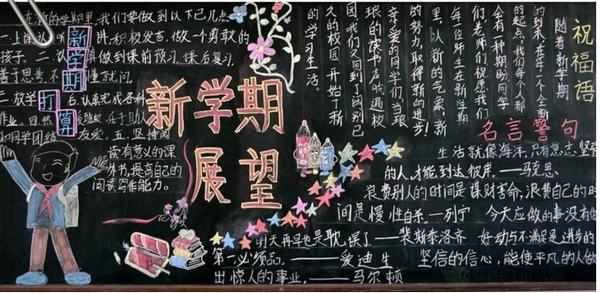 新学期打算
我们要做到以下几点
积极发言,做一个勇敢的
孩子。二.认真做到课前预习,课后复习,
善于思考,不懂就问。
认真完成各种
和同学团结友爱,五.坚持阅
读有意义的课
外书,提高自己的
阅读写作能力。
新学期
展望
祝福语
随着新学期
的到来,在年一个全新
的起点,我们每个人都
有一种期盼,同学
们,老师们祝愿我们
每位师生在新学期
里,以新的气象,新
的努力,取得新的进步!
亲爱的同学们,当琅
琅的读书声响遍校
园,我们又回到了阔别已
久的校园,开始了新
的学习生活。
名言警句
生活就像海洋,只有意志坚强
的人,才能到达彼岸。——马克思。
浪费别人的时间是谋财害命,浪费自己的时
间是慢性自杀。——列宁 今天应做的事没有做
明天再早也是耽误了——裴斯泰洛齐 好动与不满足是进步的
第一必须品。——爱迪生 坚信的信心,能使平凡的人做
出惊人的事业,——马尔顿